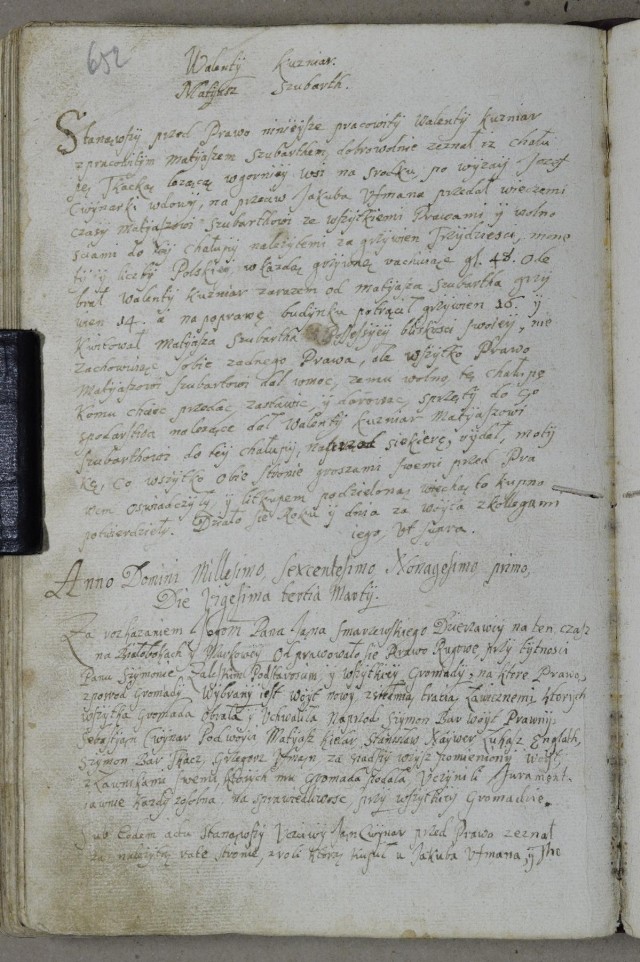 652
Walenty Kuzniar.
Matysz Szubarth.
Stanąwszy przed Prawo ninieysze pracowity Walenty Kuzniar
z pracowitym Matyiaszem Szubarthem, dobrowolnie zeznał iz chału
pę, Tkacką lezącą w gorniey wsi na srodku, po wyzaiy Jozef
Cwynarki wdowy, na przeciw Jakuba Ufmana przedał wiecznemi
czasy Matyiaszowi Szubarthowi ze wszytkiemi Prawami y wolno
sciami do tey chałupy nalezytemi za grzywien Trzydziesci, mone
ty y liczby Polskiey, w kazdą grzywnę rachuiąc gl. 48. Ode
brał Walenty Kuzniar zarazem od Matyiasza Szubartha grzy
wien 14. a na poprawę budynku potrącił grzywien 16. y
kwitował Matyiasza Szubartha bliskosci swoiey, nie
zachowuiąc sobie zadnego Prawa, ale wszytko Prawo
Matyiaszowi Szubartowi dał w moc, iemu wolno tę chałupę
komu chciec przedac, zastawic, y darowac, sprzęty do go
spodarstwa nalezące dał Walenty Kuzniar Matyiaszowi
Szubarthowi do tey chałupy, naprzod siekierę, rydel, moty
kę, Co wszytko obie stronie groszami swemi przed Pra
wem oswiadczyły y litkupem to kupno
potwierdzieły. Działo się Roku y dnia za woyta z kollegami
iego, ut supra.
Anno Domini Millesimo, Sexcentesimo Nonagesimo primo,
Die Vigesima tertia Martij.
Za rozkazaniem Jegom Pana Jana Smarzewskiego Dzierzawcy na ten czas
na Białobokach y Markowy Odprawowało się Prawo Rugowe przy bytnosci
Pana Szymona Podstarosciu, y wszytkiey Gromady, na ktore Prawo
z powod Gromady Wybrany iest woyt nowy, z siedmią bracią Ławicznemi ktorych
wszytka Gromada obrała y Uchwaliła Naprzod Szymon Bar woyt Prawny
Sebestyan Cwynar Podwoyci Matyasz Kielar, Stanisław Naywer Łukasz Englath,
Szymon Bar Tkacz, Grzegorz Ufman, za siadszy wyysz pomieniony Woyt
z Ławnikami swemi ktorych mu Gromada podała Uczynili Jurament
iawnie kazdy zosobna na sprawiedliwosc przy wszytkiey Gromadzie.
Sub Eodem actu Stanąwszy Uczciwy Jan Cwynar przed Prawo zeznał
za nalezytą rate stronie, z roli ktorą kupił u Jakuba Ufmana, y